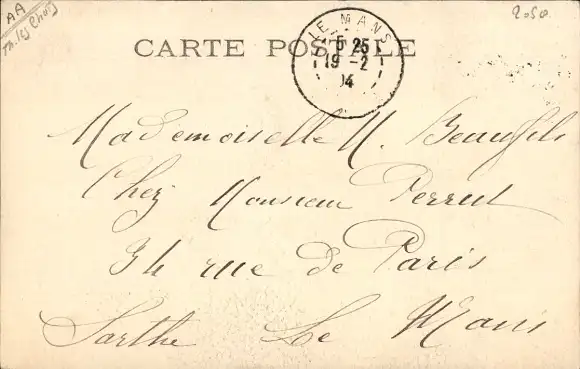 AA
2.50
CARTE POSTALE
LE MANS
5 25
19 - 2
04
Mademoiselle M. Beaufils
Chez Monsieur Perrut
34 rue de Paris
Sarthe Le Mans